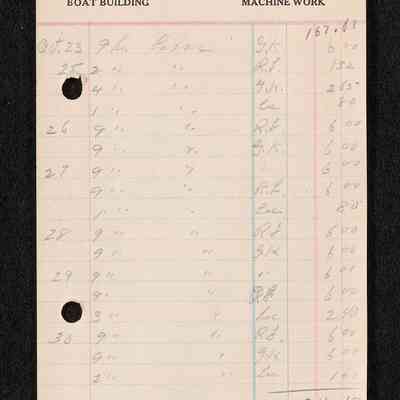 BOAT BUILDING MACHINE WORK
167.63
Oct. 23 9 hr Labor " G.K. 6 00
25 2 " " R.L. 1 32
4 " " G.K. 2 65
1 " " Lu 80
26 9 " " R.L. 6 00
9 " " G.K. 6 00
27 9 " " 6 00
9 " " R.L. 6 00
1 " " Lu 80
28 9 " " R.L. 6 00
9 " " G.K. 6 00
29 9 " " " 6 00
9 " " R.L. 6 00
3 " " Lu 2 40
30 9 " " R.L. 6 00
9 " " G.K. 6 00
2 " " Lu 1 60